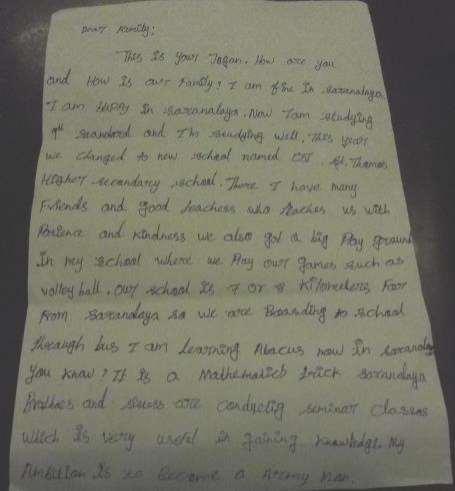 Dear Family,
This is your Jagan. How are you
and How is our Family? I am fine in Saranalaya
I am Happy in Saranalaya. Now I am studying
9th Standard and I'm studying well. This year
we changed to new school named CSI. St. Thomas
Higher secondary school. There I have many
Friends and good teachers who teaches us with
Patience and kindness we also got a big Play ground
in my school where we Play our games such as
volley ball. Our school is 7 or 8 Kilometers Far
From Saranalaya so we are Boarding to school
through bus I am Learning Abacus now in Saranalay
You know? It is a Mathematics trick Saranalaya
Brothers and are conductig seminar classes
which is very useful in gaining knowledge. My
Ambition is to Become a Army man.